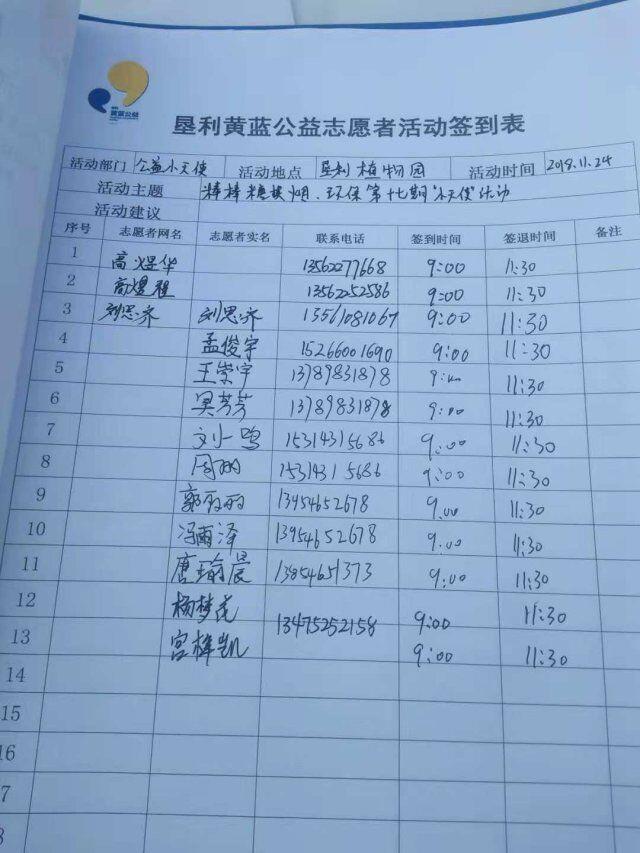 黄蓝公益
垦利黄蓝公益志愿者活动签到表
活动部门 公益小天使 活动地点 垦利植物园 活动时间 2018.11.24
活动主题 棒棒糖换烟、环保第十七期"小天使"活动
活动建议
序号 志愿者网名 志愿者实名 联系电话 签到时间 签退时间 备注
1 高煜华 13562077668 9:00 11:30
2 高煜程 13562052586 9:00 11:30
3 刘思齐 刘思齐 13561081067 9:00 11:30
4 孟俊宇 15266001690 9:00 11:30
5 王崇宇 13789831878 9:00 11:30
6 吴芳芳 13789831878 9:00 11:30
7 刘一鸣 15314315686 9:00 11:30
8 周丽 15314315686 9:00 11:30
9 郭丽丽 13954652678 9:00 11:30
10 冯雨泽 13954652678 9:00 11:30
11 唐瑜晨 13854651373 9:00 11:30
12 杨梦菲 13475252158 9:00 11:30
13 宫梓凯 9:00 11:30
14
15
16
7
8